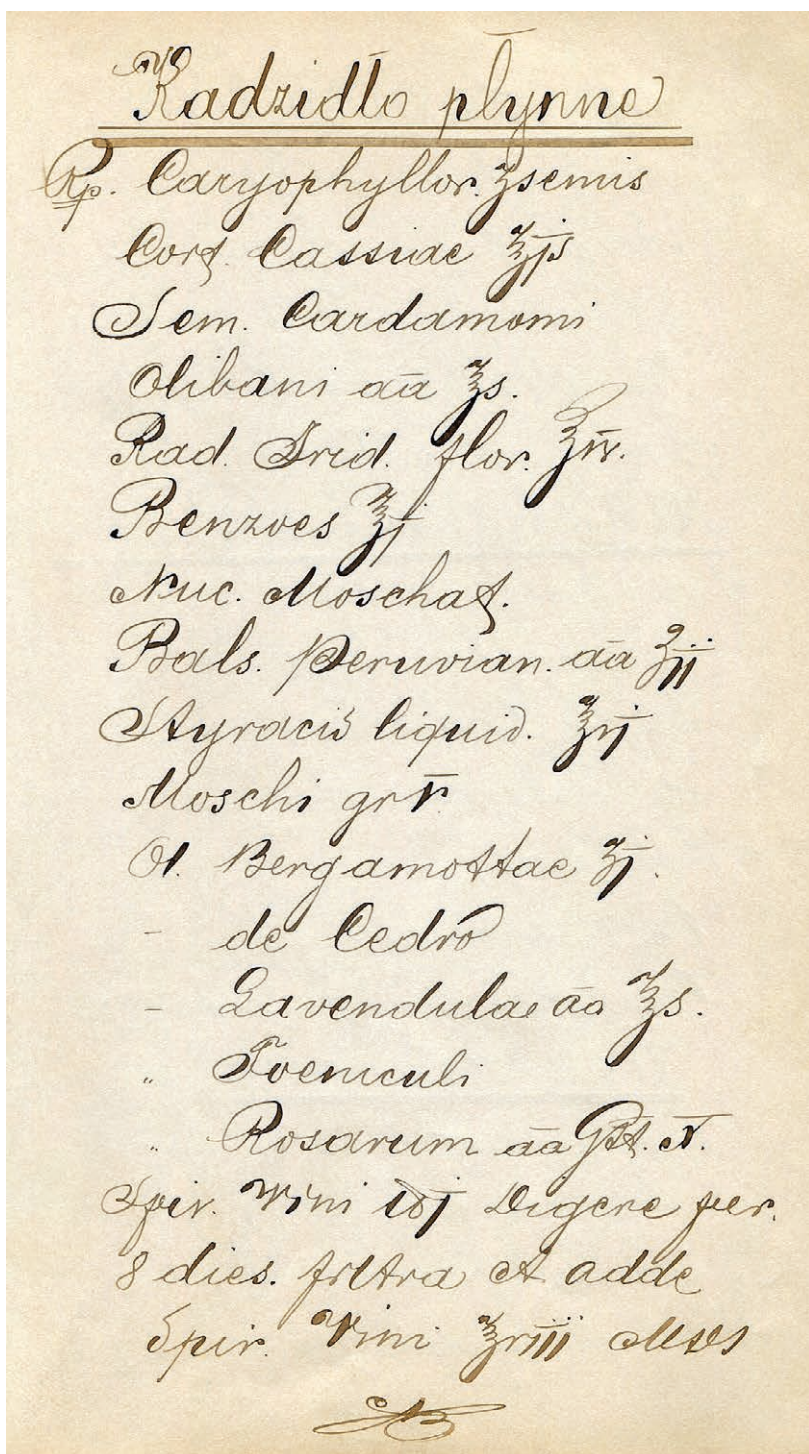 Kadzidło płynne
Rp. Caryophyllor. ʒsemis
Cort. Cassiae ℥js
Sem. Cardamomi
Olibani aa ℥s.
Rad. Irid. flor. ʒiv.
Benzoes ℥j
Nuc. Moschat.
Bals. Peruvian. āā ʒij
Styracis liquid. ℥vj
Moschi gr V.
Ol. Bergamottae ʒj.
- de Cedro
- Lavendulae āā ℥s.
" Foeniculi
" Rosarum āā Gtt. V.
Spir. Vini ℔j Digere per.
8 dies. filtra et adde
Spir. Vini ℥viii MDS